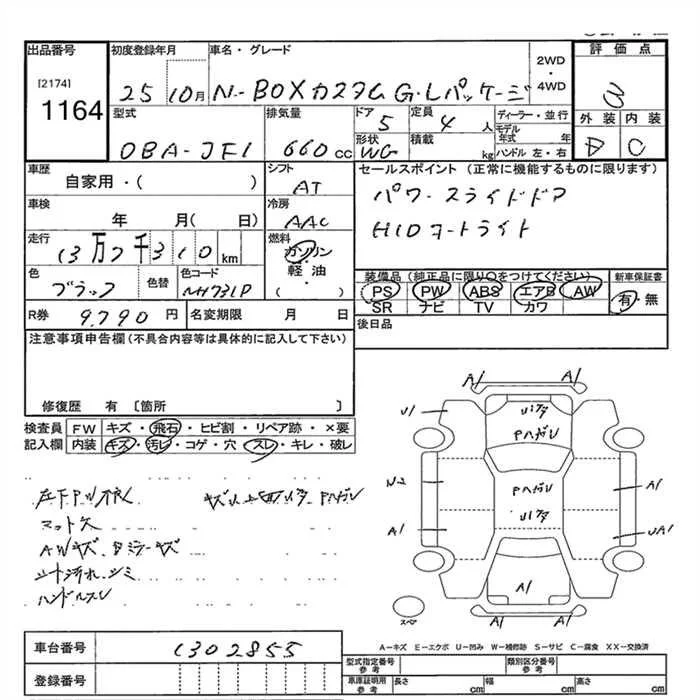 出品番号
[2174]
1164
初度登録年月
25 10月
車名・グレード
N-BOXカスタム G・Lパッケージ
2WD
・
4WD
評価点
3
外装 内装
D C
型式
DBA-JF1
排気量
660cc
ドア
5
定員
4人
形状
WG
積載
kg
ディーラー・並行
モデル年式 年
ハンドル 左・右
車歴
自家用・( )
シフト
AT
車検
年 月( 日)
冷房
AAC
走行
13万7千310km
燃料
ガソリン
・
軽油
・
( )
色
ブラック
色替
色コード
NH731P
R券 9,790円
名変期限 月 日
セールスポイント (正常に機能するものに限ります)
パワースライドドア
HIDオートライト
装備品 (純正品に限り○をつけてください)
PS PW ABS エアB AW
SR ナビ TV カワ
新車保証書
有・無
後日品
注意事項申告欄(不具合内容等は具体的に記入して下さい)
修復歴 有〔箇所 〕
検査員記入欄
FW キズ・飛石・ヒビ割・リペア跡・×要
内装 キズ・汚レ・コゲ・穴・スレ・キレ・破レ
マット欠
AWキズ
シート汚れ、シミ
ハンドルスレ
A1 A1
U1 A1
Pハガレ
N-2
Pハガレ
A1
A1
UA1
A1
A1 A1
スペア
A-キズ E-エクボ U-凹み W-補修跡 S-サビ C-腐食 XX-交換済
車台番号 1302855
登録番号
型式指定番号 参考
類別区分番号 参考
車庫証明用 参考
長さ cm
幅 cm
高さ cm